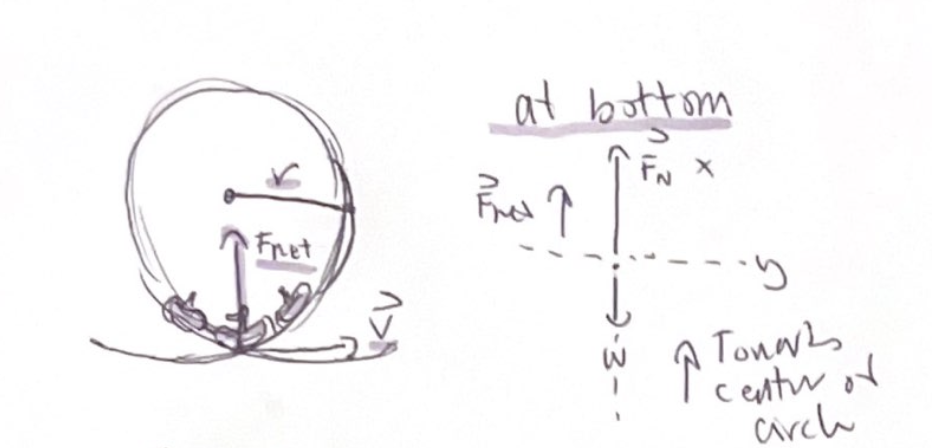 r
Fnet
V
at bottom
FN x
Fnet
y
W
Towards
center of
circle